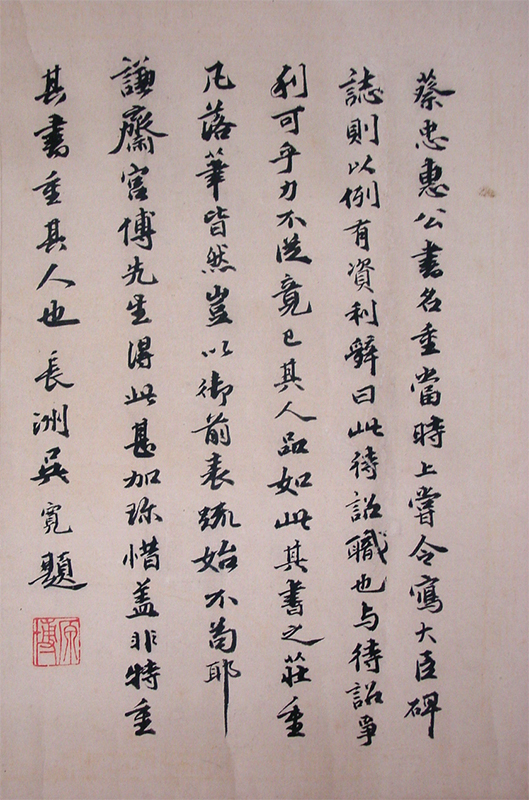 蔡忠惠公書名重當時上嘗令寫大臣碑
誌則以例有資利辭曰此待詔職也与待詔爭
利可乎力不從竟已其人品如此其書之莊重
凡落筆皆然豈以御前表疏始不苟耶
謙齋宮傅先生得此甚加珎惜蓋非特重
其書重其人也長洲吳寬題
原博